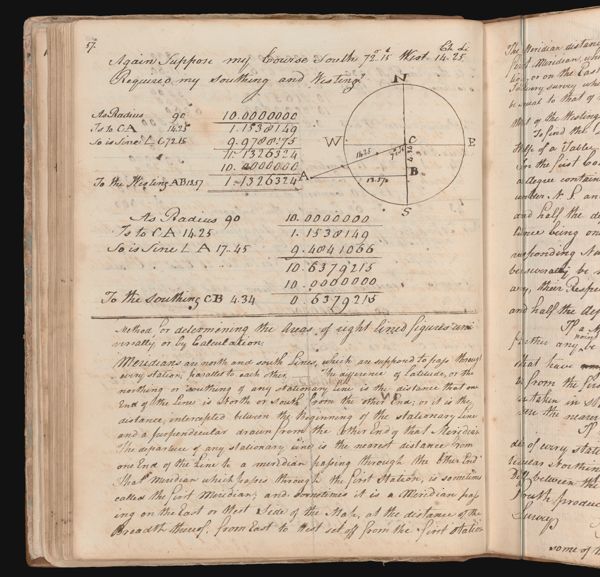 57.
Again Suppose my Course South 72° 15' West 14.25 Ch. Li.
Required my Southing and Westing?
As Radius 90 10.0000000
Is to CA 14.25 1.1538149
So is Sine L C 72.15 9.9788175
11.1326324
10.0000000
To the Westing AB 13.57 1.1326324
N
W
C
E
14.25
4.34
A
B
13.57
S
As Radius 90 10.0000000
Is to CA 14.25 1.1538149
So is Sine L A 17.45 9.4841066
10.6379215
10.0000000
To the Southing CB 4.34 0.6379215
Method for determining the Areas of right lined figures uni
versally or by Calculation.
Meridians are north and south Lines, which are supposed to pass through
every station, parallel to each other, The difference of Latitude, or the
northing or southing of any stationary line is the distance that one
End of the Line is North or South from the other End; or it is the
distance, intercepted between the beginning of the stationary Line
and a perpendicular drawn from the other End of that Meridian
The departure of any stationary line is the nearest distance from
one End of the Line to a meridian passing through the Other End
That Meridian which passes through the first Station, is sometimes
called the first Meridian; and sometimes it is a Meridian pass
ing on the East or West Side of the Map, at the distance of the
Breadth thereof, from East to West set off from the first Station
The Meridian distance
first Meridian, whi
or on the East
survey whe
equal to that of
that of the Westing
To find the
of a Table
In the first Co
a degree contain
under N. L and
and half the de
tance being on
responding Nu
be severally be s
any, their Respe
and half the deg
If a M
further any
that have
to from the firs
so taken in
the nearest
If
de of every statio
Northin
between the
South produc
Survey
some of